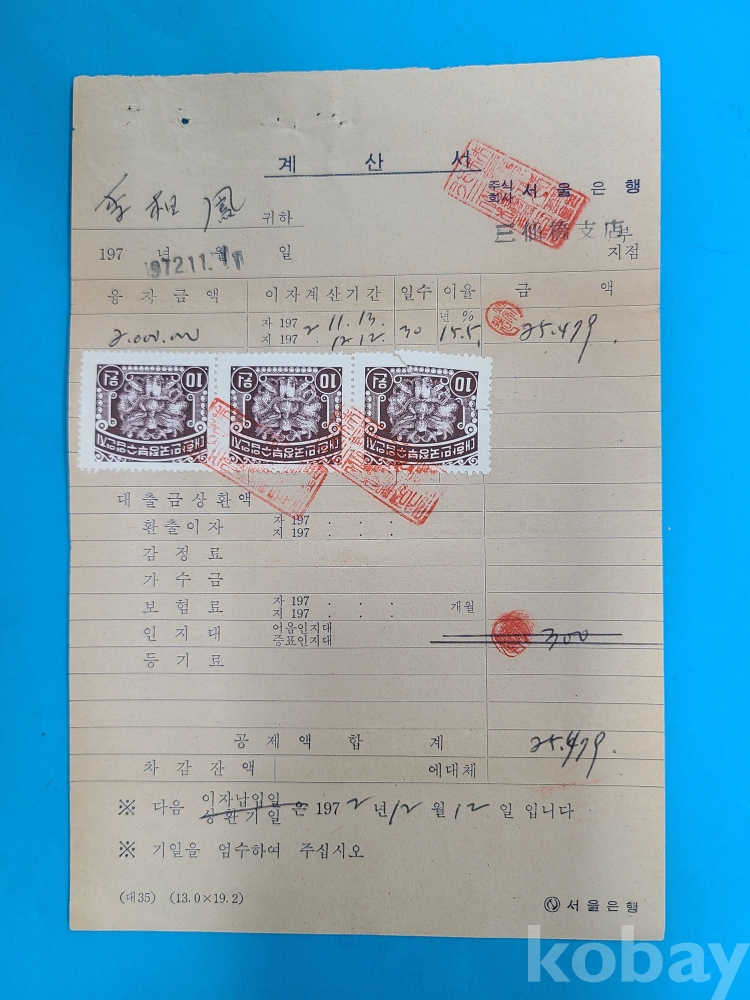 계 산 서
李相鳳 귀하
주식회사 서울은행
三仙橋支店 부
지점
197 년 월 일
1972 11. 11
융자금액 이자계산기간 일수 이율 금 액
2.000.000 자 197 2 11. 13. 30 년 % 15.5 25.479
지 197 . 12 12.
10원 10원 10원
대한민국정부수입인지 대한민국정부수입인지 대한민국정부수입인지
대출금상환액
환출이자 자 197 . . .
지 197 . . .
감정료
가수금
보험료 자 197 . . . 개월
지 197 . . .
인지대 어음인지대 300
증표인지대
등기료
공제액합계 25.479.
차감잔액 에대체
※ 다음 이자납입일 은 197 2 년 12 월 12 일 입니다
상환기일
※ 기일을 엄수하여 주십시오
(대35) (13.0×19.2) 서울은행
kobay